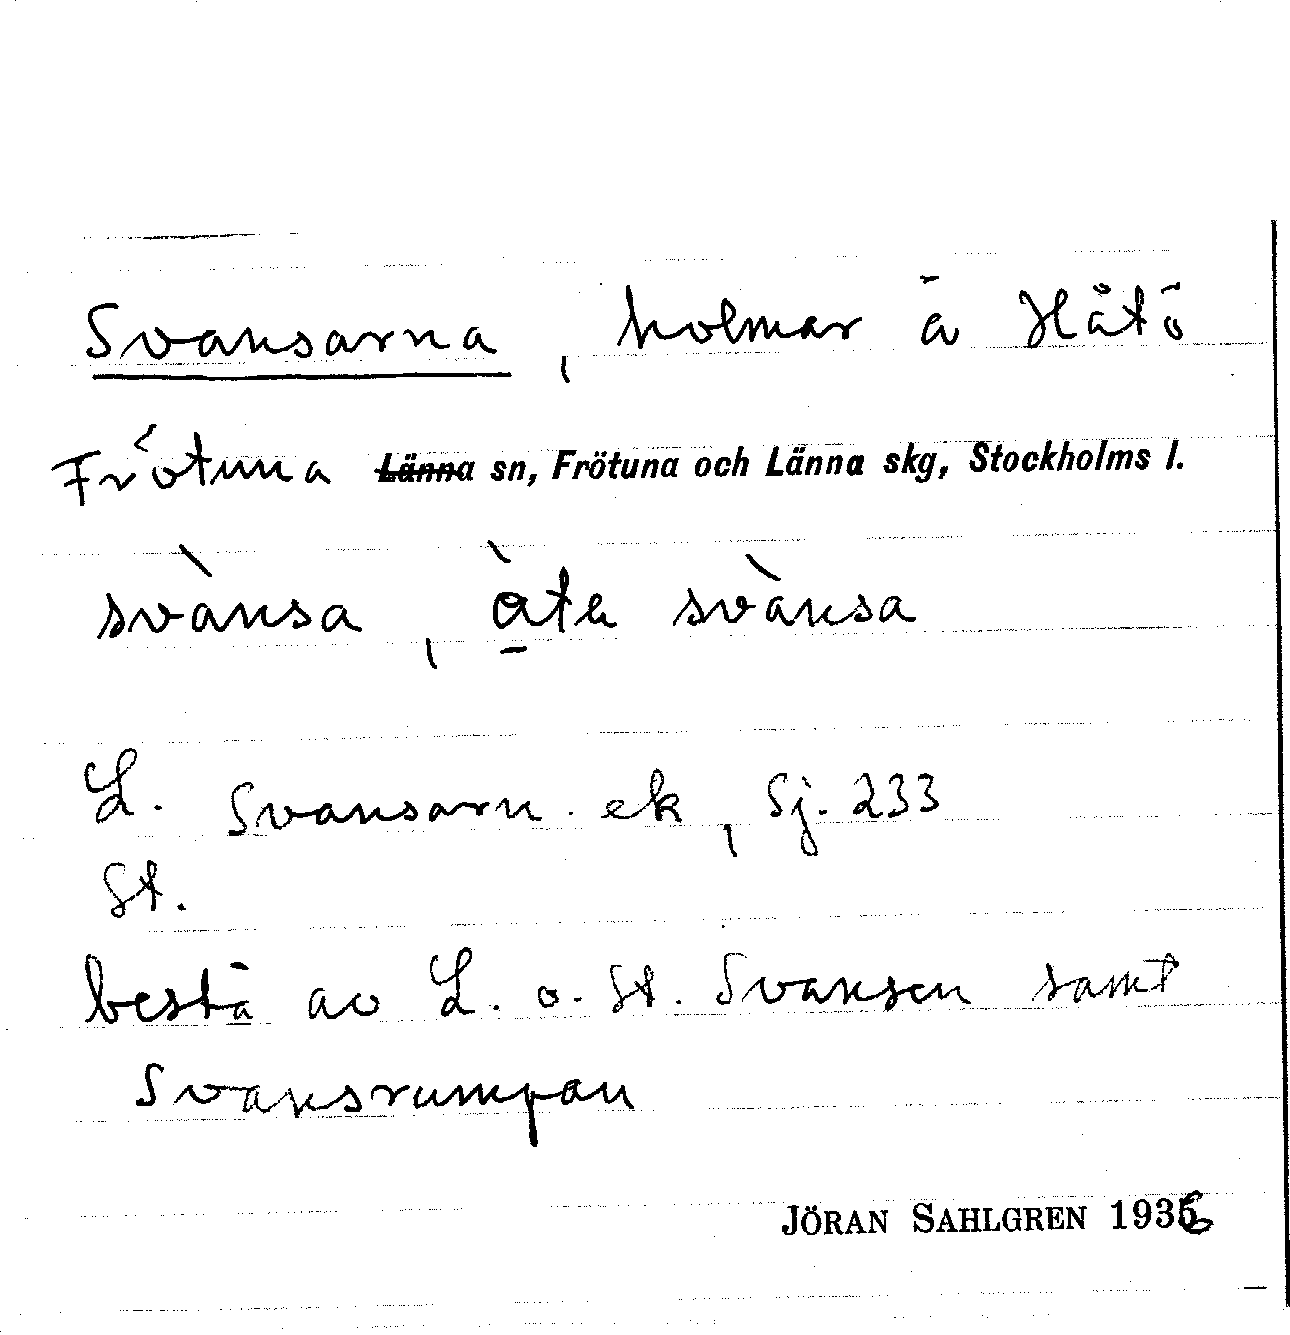 Svansarna, holmar å Håtö
Frötuna Länna sn, Frötuna och Länna skg, Stockholms l.
svànsa, ò̱ta svànsa
L. Svansarn ek, Sj. 233
St.
bestå av L. o. St. Svansen samt
Svansrumpan
JÖRAN SAHLGREN 1936